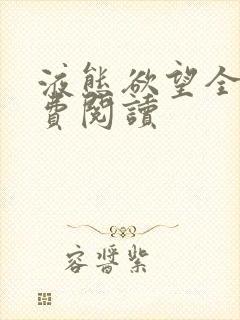 液態欲望全
費閱讀
容醬紫